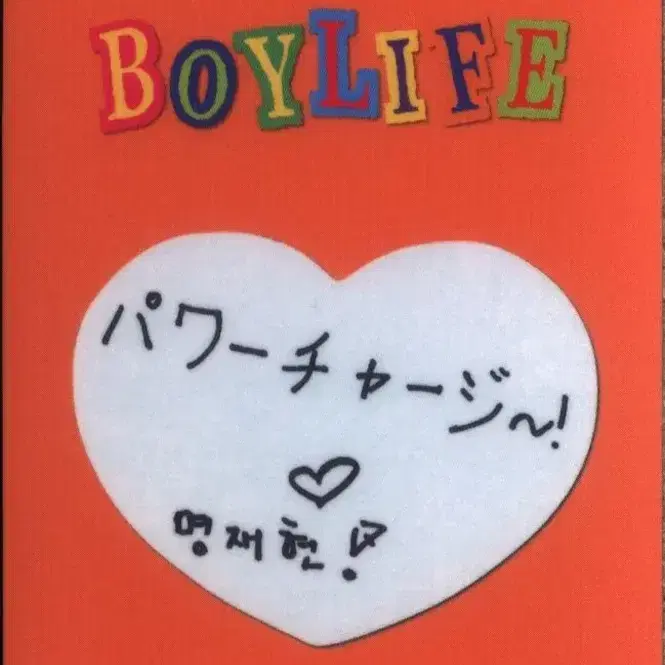 BOYLIFE
パワーチャージ〜!
♡
명재현!